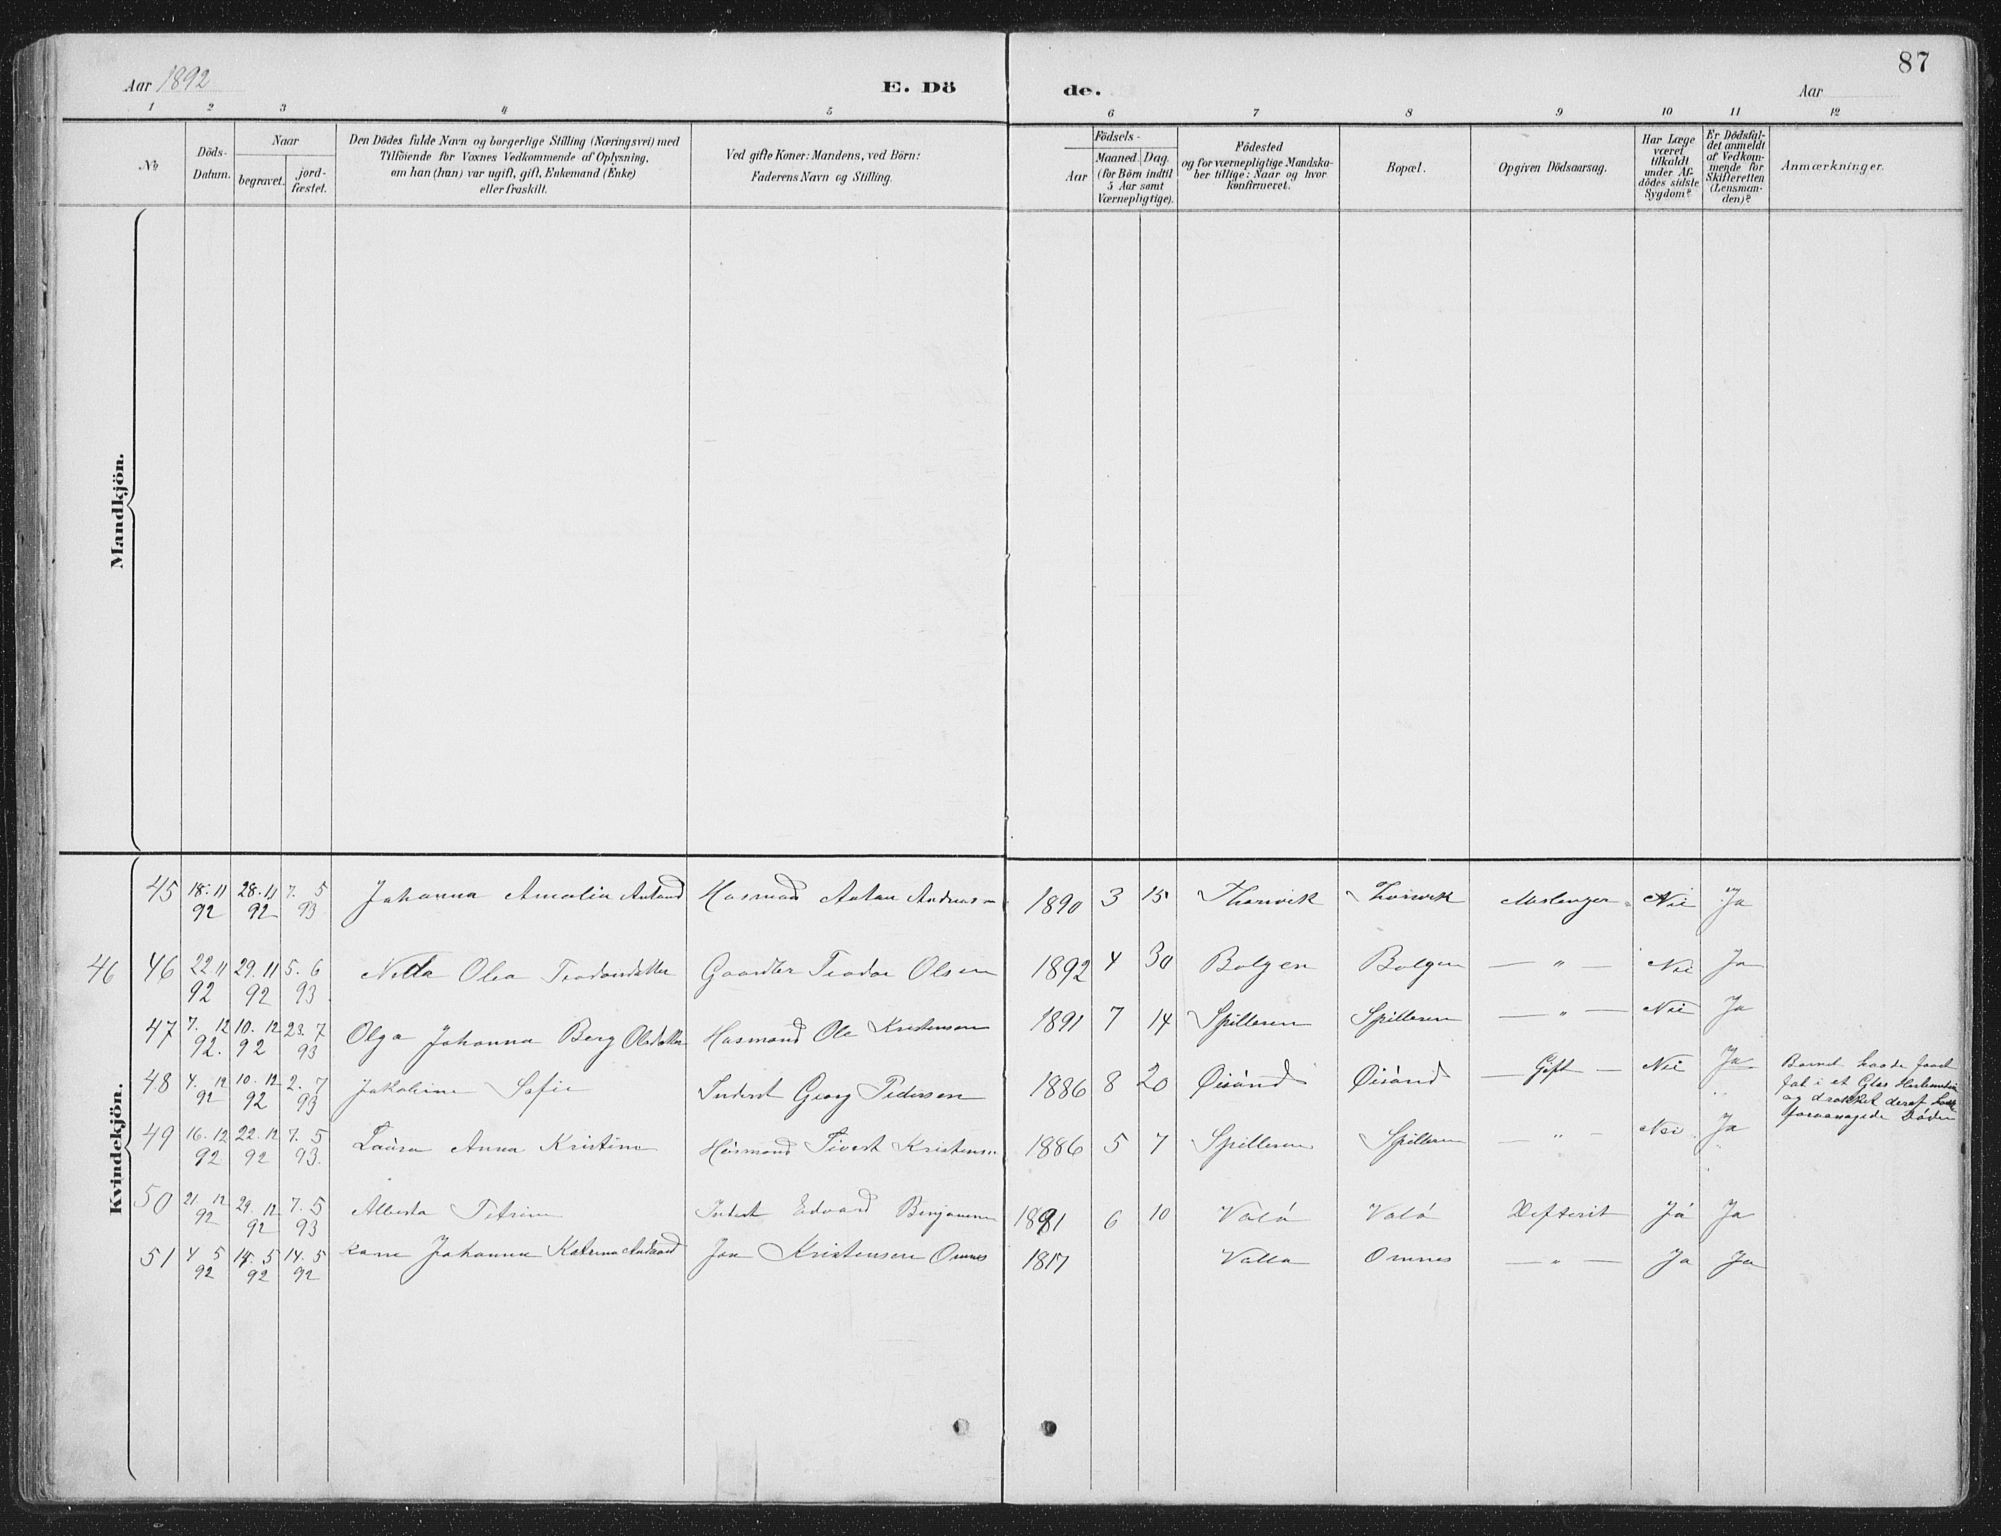 87
Aar 1892
E. Dö
de.
Aar
1 2 3 4 5 6 7 8 9 10 11 12
No
Döds-
Datum.
Naar
begravet.
jord-
fæstet.
Den Dödes fulde Navn og borgerlige Stilling (Næringsvei) med
Tilföiende for Voxnes Vedkommende af Oplysning,
om han (hun) var ugift, gift, Enkemand (Enke)
eller fraskilt.
Ved gifte Koner: Mandens, ved Börn:
Faderens Navn og Stilling.
Födsels-
Aar
Maaned. Dag.
(for Börn indtil
5 Aar samt
Værnepligtige).
Födested
og for værnepligtige Mandska-
ber tillige: Naar og hvor
konfirmeret.
Bopæl.
Opgiven Dödsaarsag.
Har Læge
været
tilkaldt
under Af-
dödes sidste
Sygdom?
Er Dödsfal-
det anmeldt
af Vedkom-
mende for
Skifteretten
(Lensman-
den)?
Anmærkninger.
Mandkjön.
Kvindekjön.
45 18.11 92 28.11 92 7.5 93 Johanna Amalia Husmand Anton 1890 3 15 Nei Ja
46 46 22.11 92 29.11 92 5.6 93 Olea Teodorsdatter Teodor Olsen 1892 4 30 Bolgen Bolgen — " — Nei Ja
47 7.12 92. 10.12 92 23.7 93 Olga Johanna Berg Olsdatter Husmand Ole Kristensen 1891 7 14 Spilleren Spilleren — " — Nei Ja
48 4.12 92 10.12 92 2.7 93 Jakobine Sofie Inderst Georg Pedersen 1886 8 20 Øisund Øisund — Gift — Nei Ja
Barnet havde faaet
fat i et Glas
og drukket deraf
foraarsagede Döden
49 16.12 92 22.12 92 7.5 93. Laura Anna Kristine Husmand Sivert Kristensen 1886 5 7 Spilleren Spilleren — " — Nei Ja
50 21.12 92 29.12 92 7.5 93 Alberta Petrine Inderst Edvard Benjaminsen 1891 6 10 Valö Valö Defterit Ja Ja
51 4.5 92 14.5 92 14.5 92 Kone Johanna Katrina Jon Kristensen Omnes 1817 Valla Omnes — " — Ja Ja